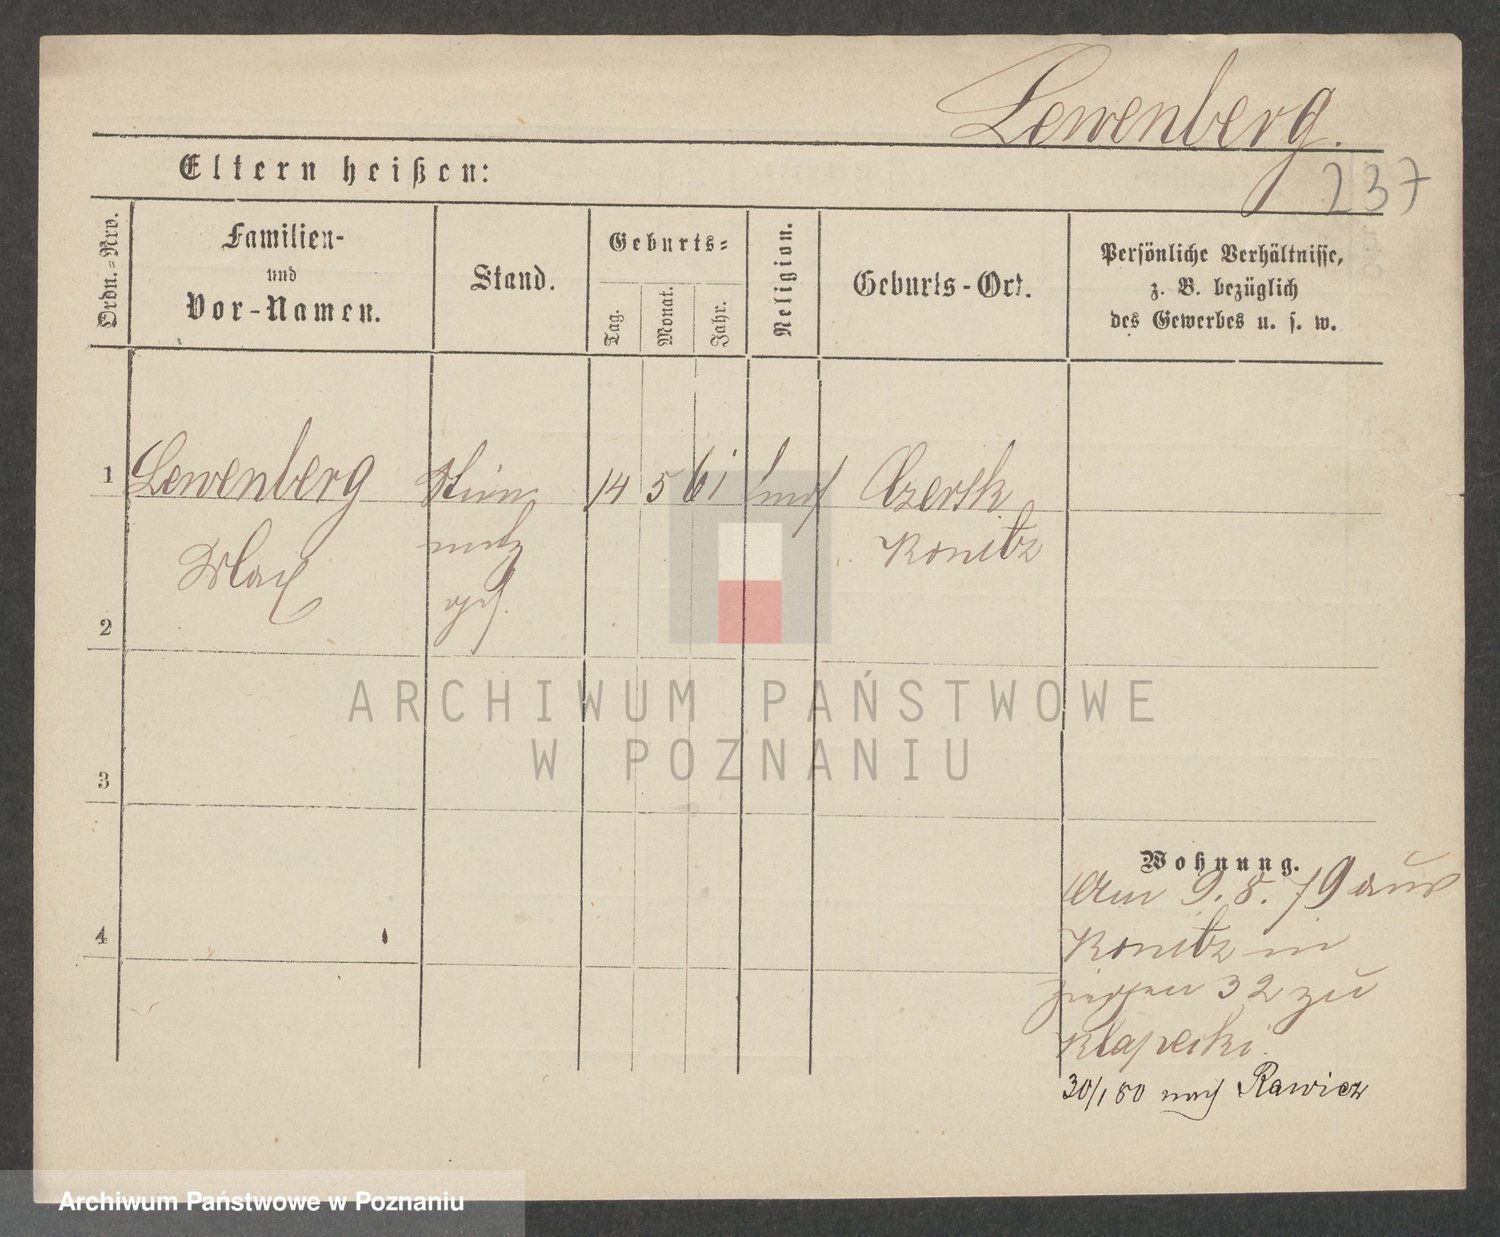 Lewenberg.
237
Eltern heißen:
Ordn.=Nro.
Familien-
und
Vor-Namen.
Stand.
Geburts=
Tag.
Monat.
Jahr.
Religion.
Geburts-Ort.
Persönliche Verhältnisse,
z. B. bezüglich
des Gewerbes u. s. w.
1 Lewenberg 14 5 61 Czersk
Konitz
Max
2
3
4
ARCHIWUM PAŃSTWOWE
W POZNANIU
Wohnung.
Am 9. 8. 79 aus
Konitz in
32 zu
30/1 80 nach Rawicz
Archiwum Państwowe w Poznaniu